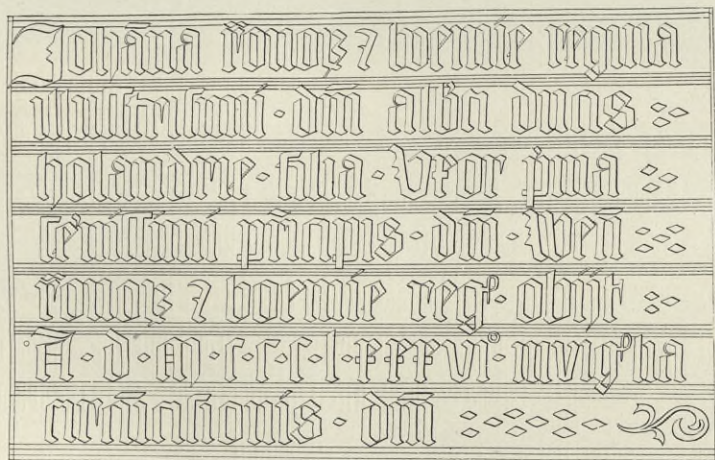 Johāna r̄omoꝝ ⁊ boemie regina
illustrissimi · dn̄i alb̄ti ducis
holandrie · filia · Vxor p̍ma
sēnissimi p̄ncipis · dn̄i · Wen̄
r̄omoꝝ ⁊ boemie regꝭ · obijt
A · d · M · c · c · c · l · xxxvi° · in vigꝭlia
circūcisionis · dn̄i